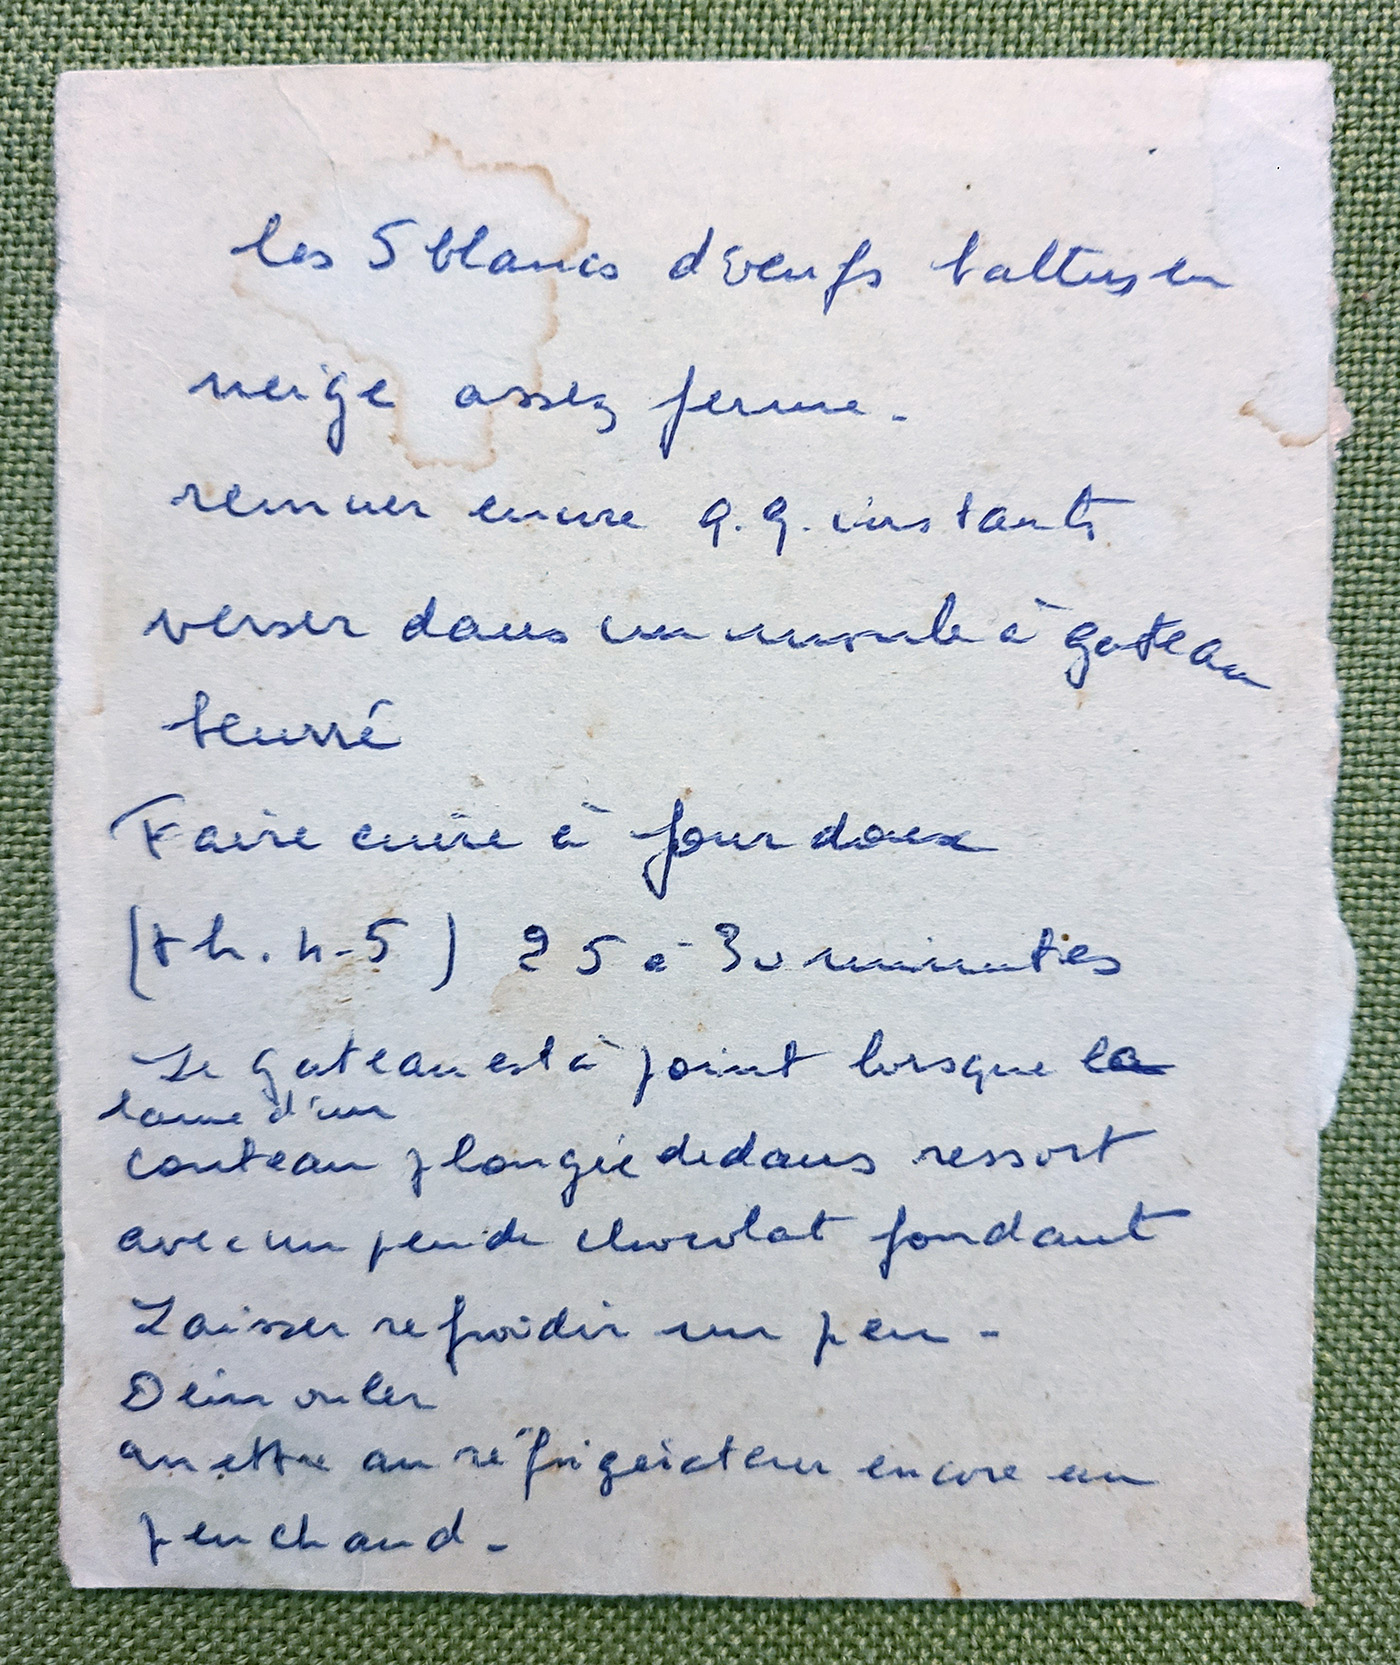 les 5 blancs d'oeufs battus en
neige assez ferme.
remuer encore q.q. instants
verser dans un moule à gateau
beurré
Faire cuire à four doux
(th. 4-5) 25 à 30 minutes
Le gateau est à point lorsque la
lame d'un
couteau plongée dedans ressort
avec un peu de chocolat fondant
Laisser refroidir un peu -
Démouler
mettre au réfrigérateur encore un
peu chaud -